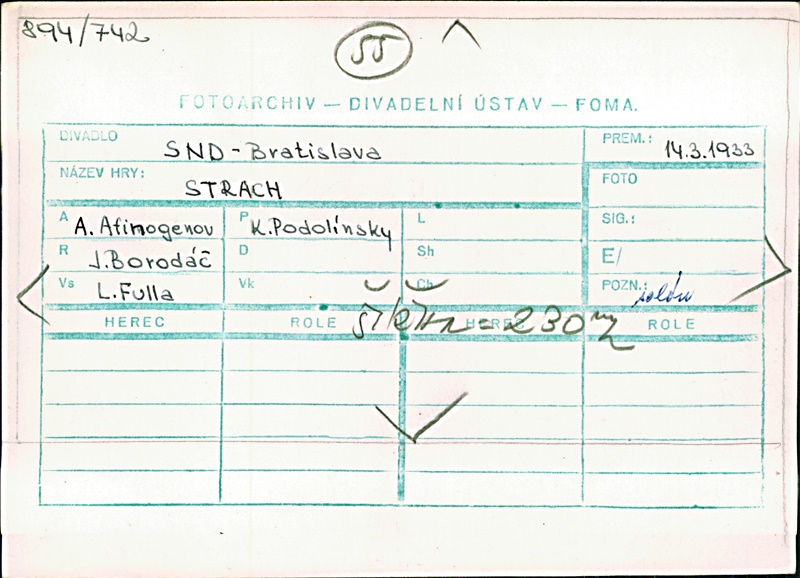 894/742
55
FOTOARCHIV — DIVADELNÍ ÚSTAV — FOMA.
DIVADLO SND - Bratislava
PREM.: 14.3.1933
NÁZEV HRY: STRACH
FOTO
A A. Afinogenov P K. Podolínsky L
SIG.:
R J. Borodáč D Sh
E/
Vs L. Fulla Vk Ch
POZN.:
HEREC ROLE HEREC ROLE
šířka = 230 m/m